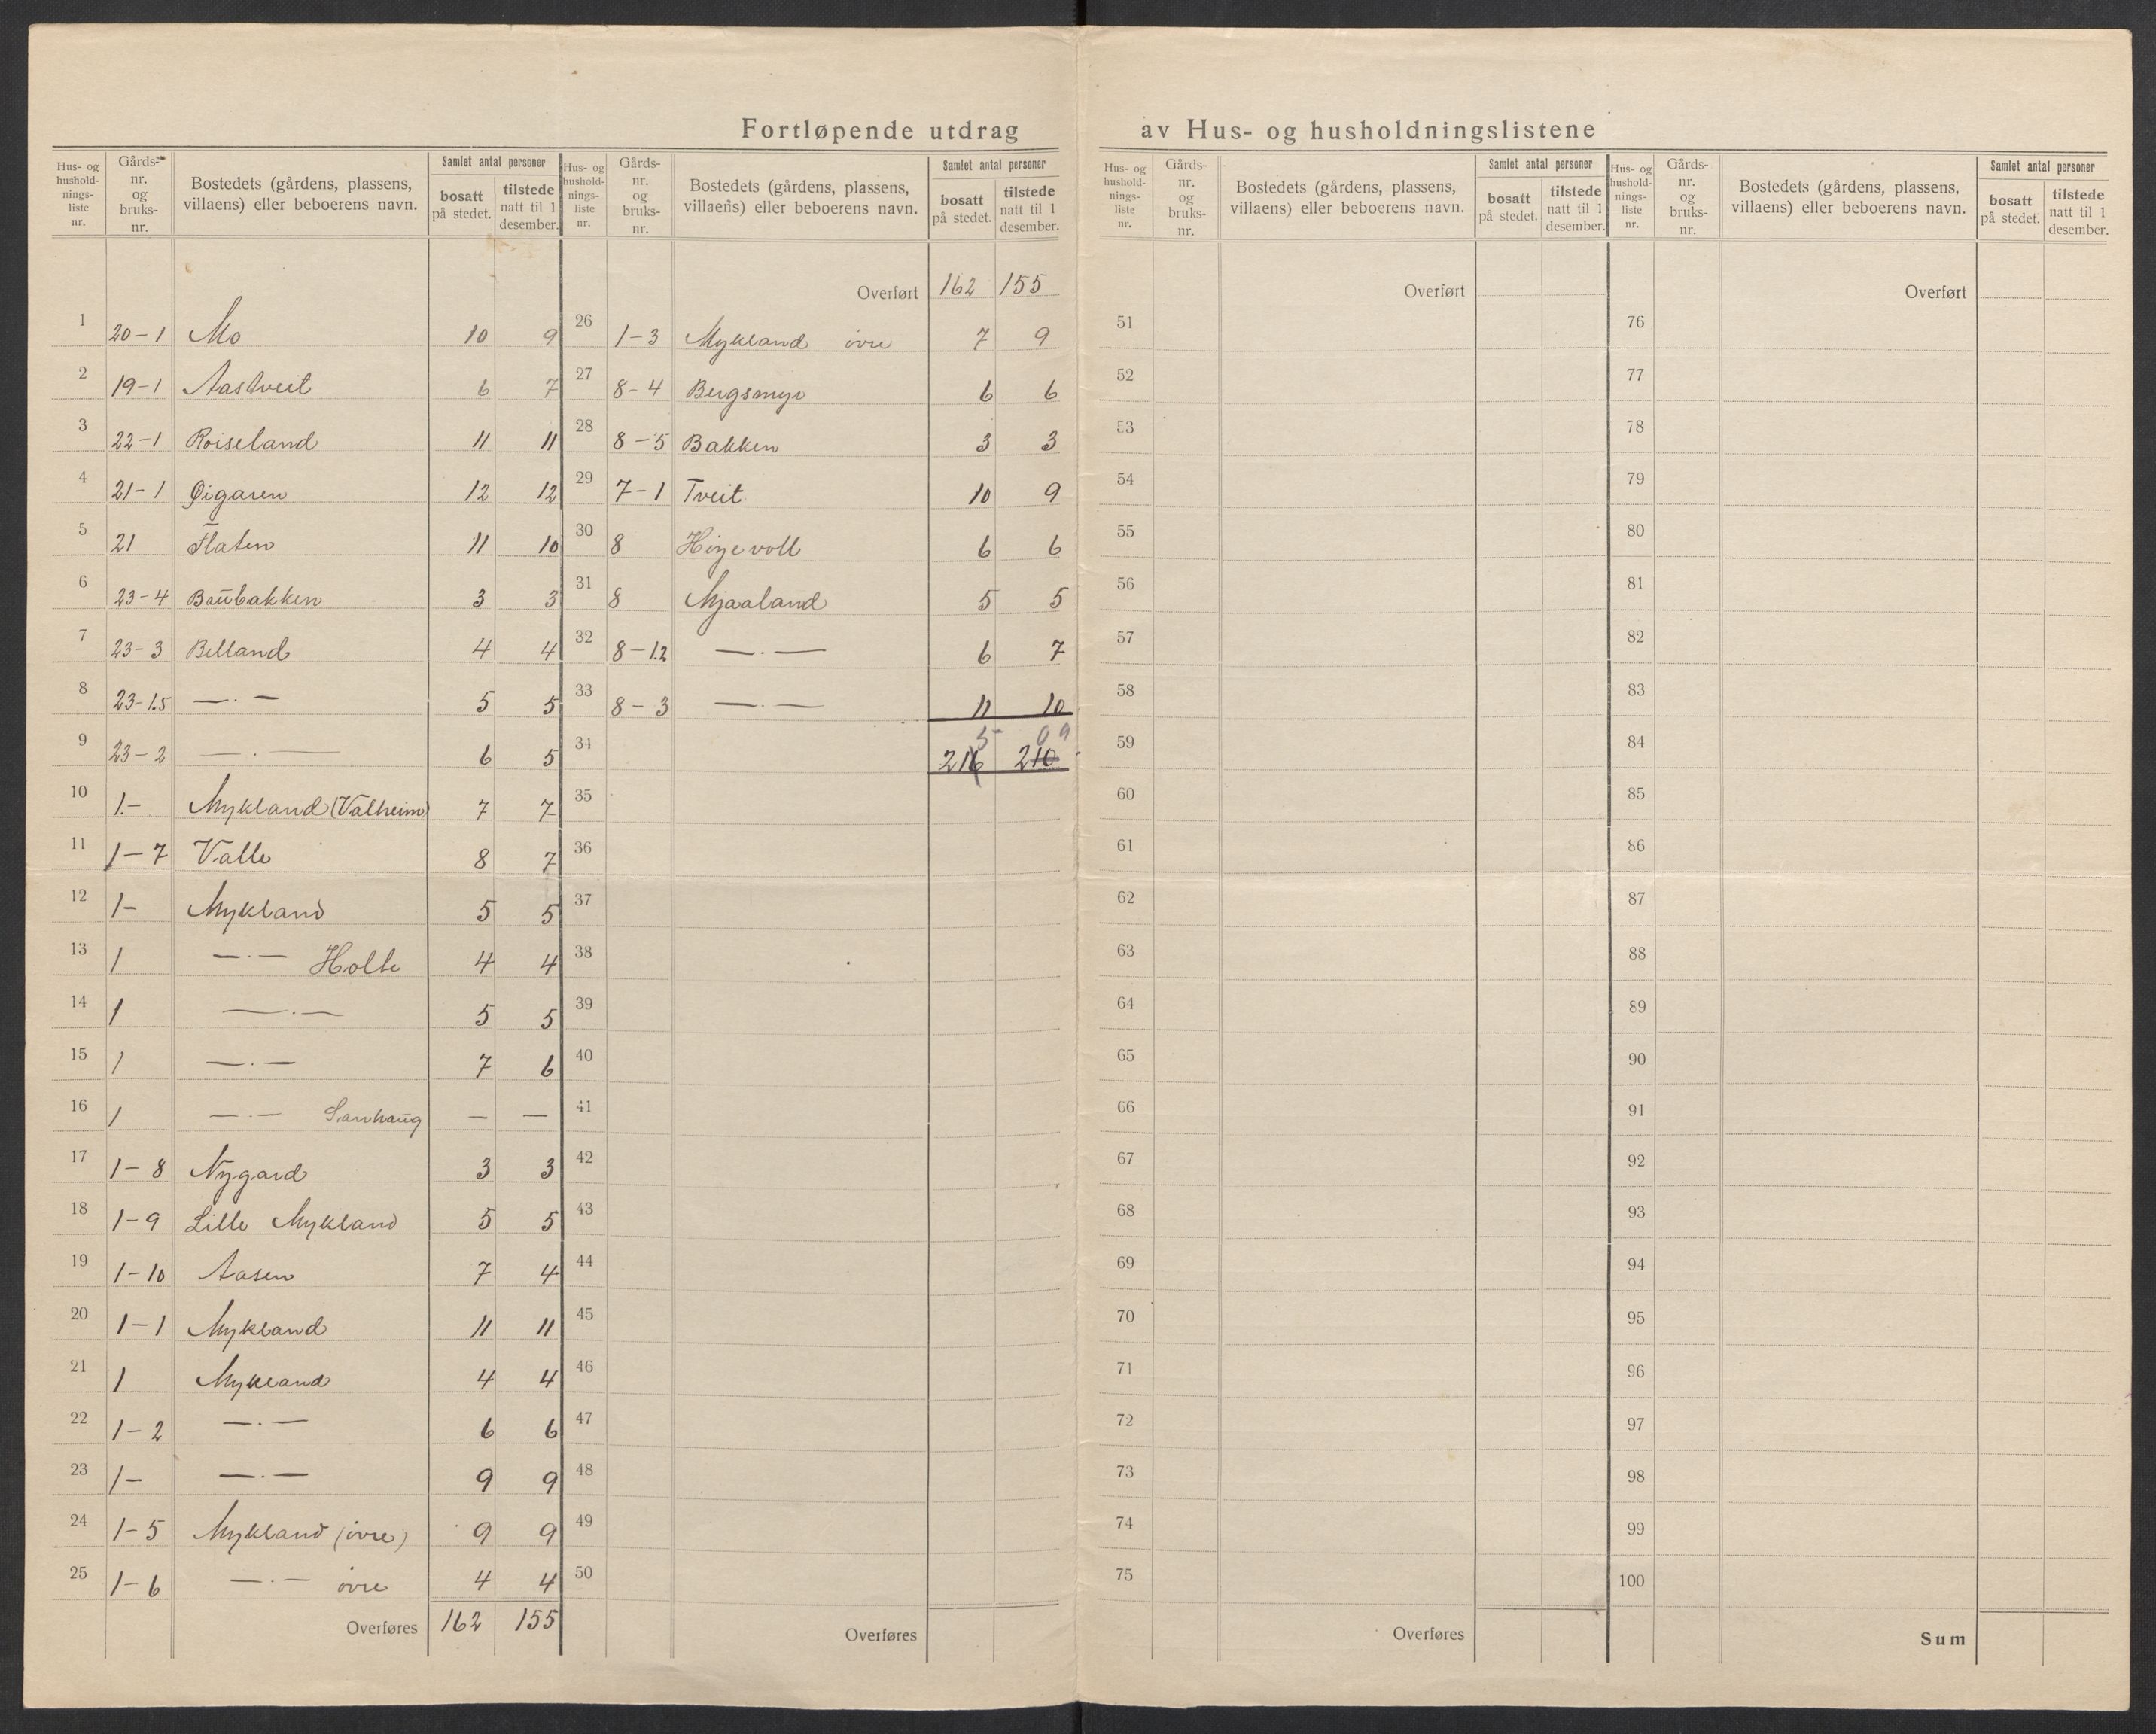 Fortløpende utdrag av Hus- og husholdningslistene
Hus- og husholdningsliste nr. | Gårds- nr. og bruks- nr. | Bostedets (gårdens, plassens, villaens) eller beboerens navn. | Samlet antal personer bosatt på stedet. | tilstede natt til 1 desember.
1 20-1 Mo 10 9
2 19-1 Aastveit 6 7
3 22-1 Roiseland 11 11
4 21-1 Øigaren 12 12
5 21 Flaten 11 10
6 23-4 Baubakken 3 3
7 23-3 Belland 4 4
8 23-1.5 —.— 5 5
9 23-2 —.— 6 5
10 1.- Mykland (Valheim) 7 7
11 1-7 Valle 8 7
12 1- Mykland 5 5
13 1 —.— Holte 4 4
14 1 —.— 5 5
15 1 —.— 7 6
16 1 —.— Sanhaug — —
17 1-8 Nygard 3 3
18 1-9 Lille Mykland 5 5
19 1-10 Aasen 7 4
20 1-1 Mykland 11 11
21 1 Mykland 4 4
22 1-2 —.— 6 6
23 1- —.— 9 9
24 1-5 Mykland (øvre) 9 9
25 1-6 —.— øvre 4 4
Overføres 162 155
Hus- og husholdningsliste nr. | Gårds- nr. og bruks- nr. | Bostedets (gårdens, plassens, villaens) eller beboerens navn. | Samlet antal personer bosatt på stedet. | tilstede natt til 1 desember.
Overført 162 155
26 1-3 Mykland øvre 7 9
27 8-4 Bergsmyr 6 6
28 8-5 Bakken 3 3
29 7-1 Tveit 10 9
30 8 6 6
31 8 Mjaaland 5 5
32 8-1.2 —.— 6 7
33 8-3 —.— 11 10
5 09
34 216 210
35
36
37
38
39
40
41
42
43
44
45
46
47
48
49
50
Overføres
Hus- og husholdningsliste nr. | Gårds- nr. og bruks- nr. | Bostedets (gårdens, plassens, villaens) eller beboerens navn. | Samlet antal personer bosatt på stedet. | tilstede natt til 1 desember.
Overført
51
52
53
54
55
56
57
58
59
60
61
62
63
64
65
66
67
68
69
70
71
72
73
74
75
Overføres
Hus- og husholdningsliste nr. | Gårds- nr. og bruks- nr. | Bostedets (gårdens, plassens, villaens) eller beboerens navn. | Samlet antal personer bosatt på stedet. | tilstede natt til 1 desember.
Overført
76
77
78
79
80
81
82
83
84
85
86
87
88
89
90
91
92
93
94
95
96
97
98
99
100
Sum